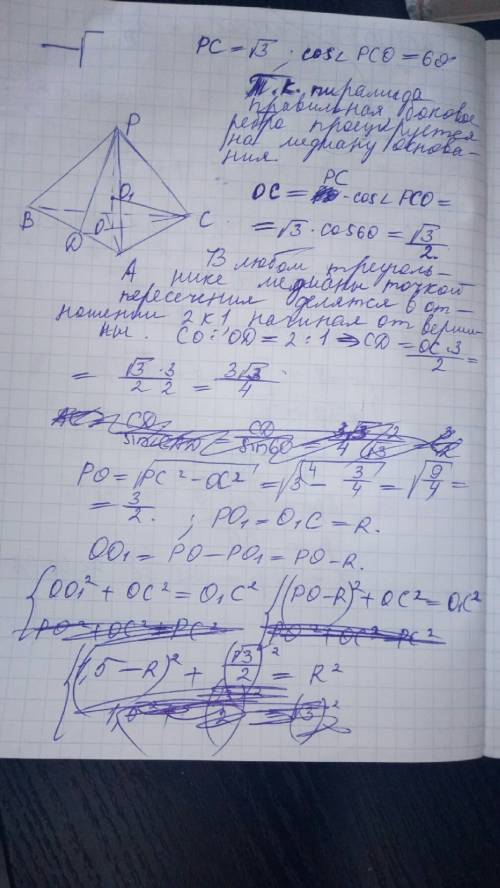 PC = √3 · cos∠PCO = 60°
Т.к. пирамида
правильная боковое
ребро проецируется
на медиану основа-
ния.
P
O₁
B
C
D
O
A
OC = PC · cos∠PCO =
= √3 · cos60 = √3/2.
В любом треуголь-
нике медианы точкой
пересечения делятся в от-
ношении 2 к 1 начиная от верши-
ны. CO : OD = 2 : 1 ⇒ CD = OC·3/2 =
= √3·3/2·2 = 3√3/4
PO = √PC² − OC² = √3 − 3/4 = √9/4 =
= 3/2. ; PO₁ = O₁C = R.
OO₁ = PO − PO₁ = PO − R.
{OO₁² + OC² = O₁C² {(PO−R)² + OC² = O₁C²
PO² + OC² = PC² PO² + OC² = PC²
{(1,5 − R)² + (√3/2)² = R²